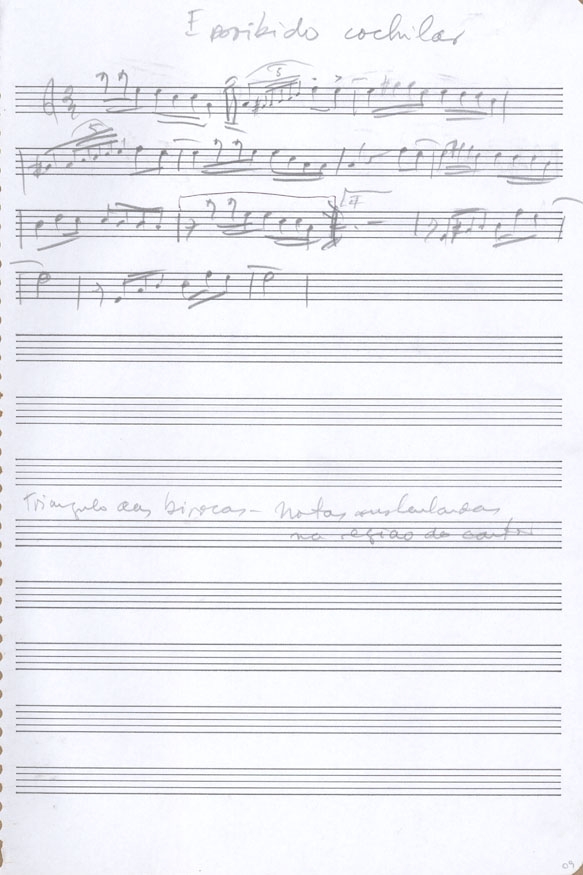 É proibido cochilar
5
5
2
Triangulo das birocas - Notas sustentadas
na região do cantor
04